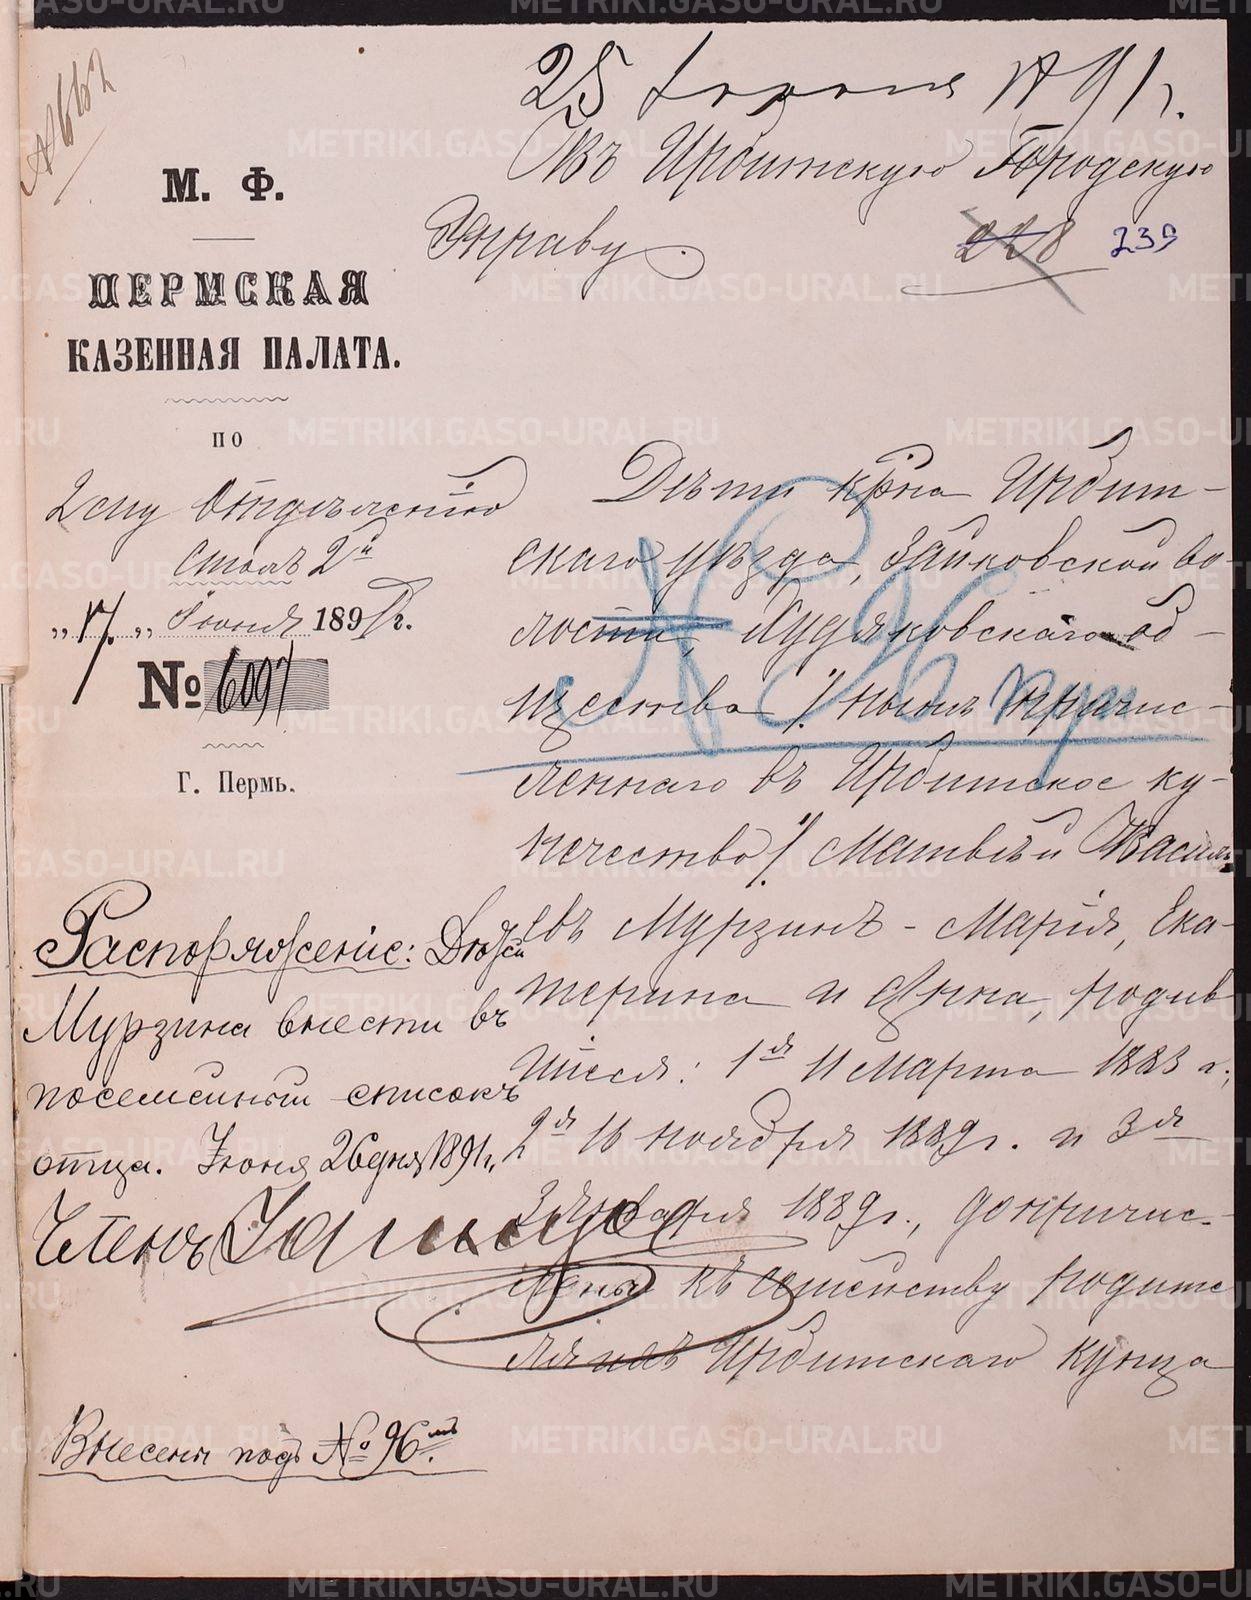 25 Іюня 1891 г.
Въ Ирбитскую Городскую
Управу.
228 239
М. Ф.
ПЕРМСКАЯ
КАЗЕННАЯ ПАЛАТА.
ПО
2 му Отдѣленію
Столъ 2й
„17„ Іюня 1891 г.
№ 6097
Г. Пермь.
Дѣти крна Ирбит-
скаго уѣзда, Зайковской во-
лости, Худяковскаго об-
щества /: нынѣ причис-
леннаго въ Ирбитское ку-
печество :/ Матвѣй Василь
евъ Мурзинъ - Марія, Ека-
терина и Анна, родив
шіеся: 1я 11 Марта 1883 г.,
2я 16 ноября 1889 г. и 3я
3 Января 1889 г., допричис-
лены къ семейству родите
ля ихъ Ирбитскаго купца
№ 96 куп
Распоряженіе:
Мурзина внести въ
посемейный списокъ
отца. Іюня 26 дня 1891 г.
Членъ
Внесены подъ № 96мъ.
METRIKI.GASO-URAL.RU